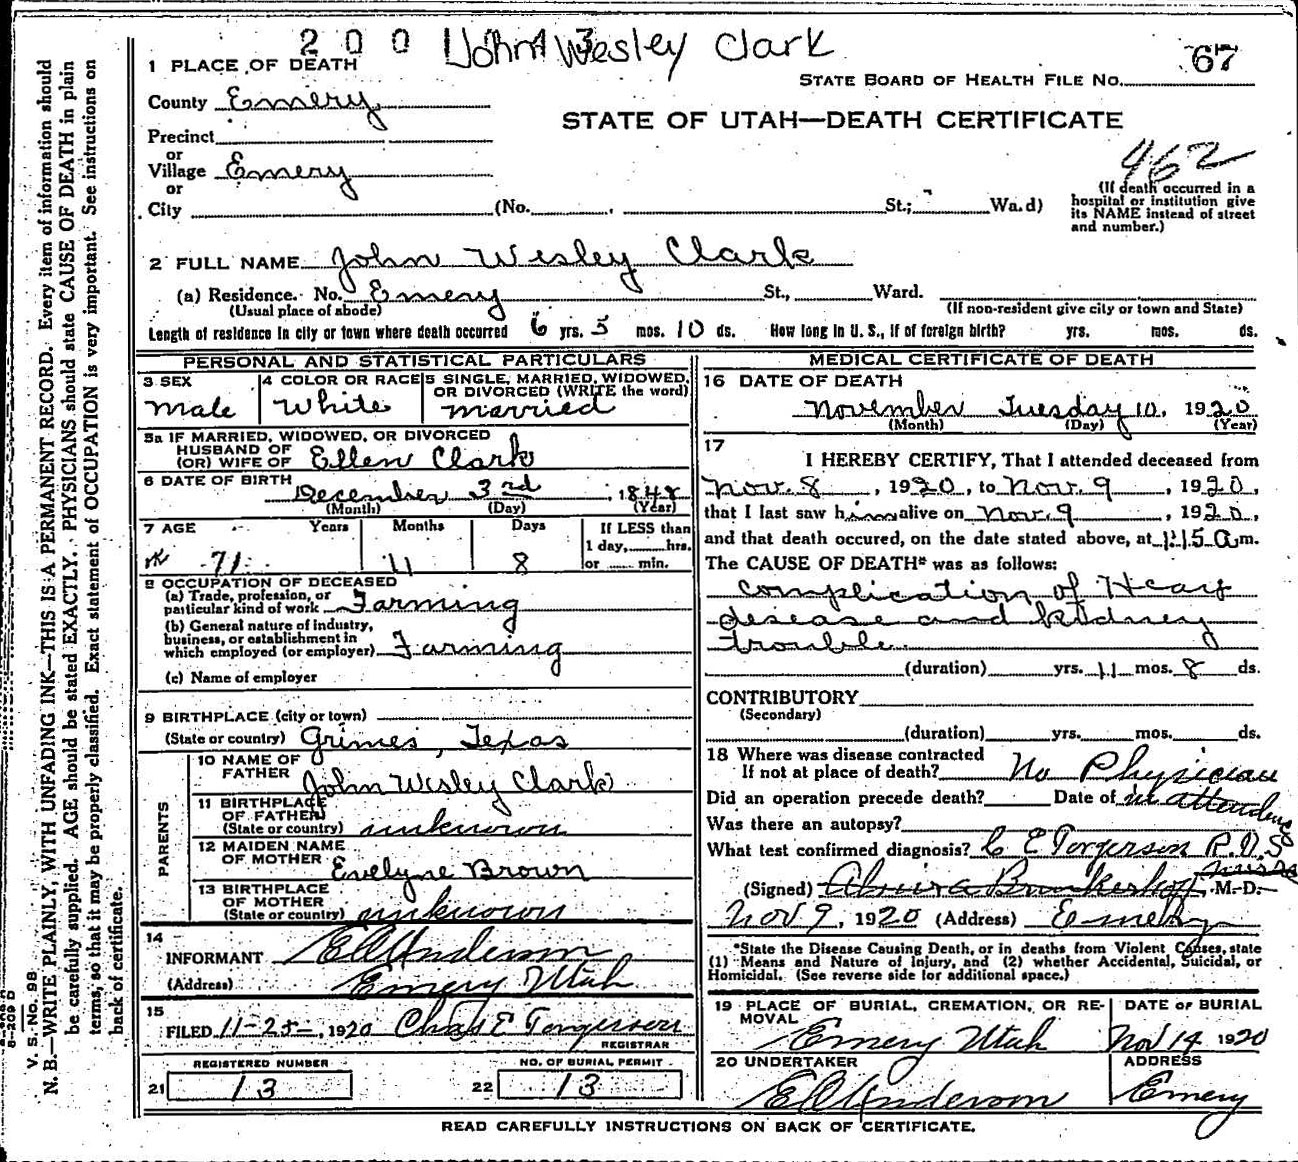 2 0 0 1 3
John Wesley Clark
67
STATE BOARD OF HEALTH FILE NO.
STATE OF UTAH—DEATH CERTIFICATE
462
1 PLACE OF DEATH
County Emery
Precinct
or
Village Emery
or
City (No. St.; Ward)
(If death occurred in a
hospital or institution give
its NAME instead of street
and number.)
2 FULL NAME John Wesley Clark
(a) Residence. No. Emery St., Ward.
(Usual place of abode) (If non-resident give city or town and State)
Length of residence in city or town where death occurred 6 yrs. 5 mos. 10 ds. How long in U. S., if of foreign birth? yrs. mos. ds.
PERSONAL AND STATISTICAL PARTICULARS
3 SEX
Male
4 COLOR OR RACE
White
5 SINGLE, MARRIED, WIDOWED,
OR DIVORCED (WRITE the word)
married
5a IF MARRIED, WIDOWED, OR DIVORCED
HUSBAND OF
(OR) WIFE OF Ellen Clark
6 DATE OF BIRTH
December 3rd, 1848
(Month) (Day) (Year)
7 AGE Years Months Days
71 11 8
If LESS than
1 day, hrs.
or min.
8 OCCUPATION OF DECEASED
(a) Trade, profession, or
particular kind of work Farming
(b) General nature of industry,
business, or establishment in
which employed (or employer) Farming
(c) Name of employer
9 BIRTHPLACE (city or town)
(State or country) Grimes, Texas
PARENTS
10 NAME OF
FATHER John Wesley Clark
11 BIRTHPLACE
OF FATHER
(State or country) unknown
12 MAIDEN NAME
OF MOTHER Evelyne Brown
13 BIRTHPLACE
OF MOTHER
(State or country) unknown
14
INFORMANT E A Anderson
(Address) Emery Utah
15
FILED 11-25-, 1920 Chas E Torgerson
REGISTRAR
REGISTERED NUMBER
21 13
NO. OF BURIAL PERMIT
22 13
MEDICAL CERTIFICATE OF DEATH
16 DATE OF DEATH
November Tuesday 10, 1920
(Month) (Day) (Year)
17
I HEREBY CERTIFY, That I attended deceased from
Nov. 8, 1920, to Nov. 9, 1920,
that I last saw him alive on Nov. 9, 1920,
and that death occured, on the date stated above, at 1:15 a m.
The CAUSE OF DEATH* was as follows:
Complication of Heart
desease and kidney
trouble.
(duration) yrs. 11 mos. 8 ds.
CONTRIBUTORY
(Secondary)
(duration) yrs. mos. ds.
18 Where was disease contracted
If not at place of death? No Physician
Did an operation precede death? Date of in attendence
Was there an autopsy?
What test confirmed diagnosis? C E Torgerson
(Signed) M. D.
Nov 9, 1920 (Address) Emery
*State the Disease Causing Death, or in deaths from Violent Causes, state
(1) Means and Nature of Injury, and (2) whether Accidental, Suicidal, or
Homicidal. (See reverse side for additional space.)
19 PLACE OF BURIAL, CREMATION, OR RE-
MOVAL
Emery Utah
DATE OF BURIAL
Nov 14 1920
20 UNDERTAKER
E A Anderson
ADDRESS
Emery
READ CAREFULLY INSTRUCTIONS ON BACK OF CERTIFICATE.
V. S. No. 98
N. B.—WRITE PLAINLY, WITH UNFADING INK—THIS IS A PERMANENT RECORD. Every item of information should
be carefully supplied. AGE should be stated EXACTLY. PHYSICIANS should state CAUSE OF DEATH in plain
terms, so that it may be properly classified. Exact statement of OCCUPATION is very important. See instructions on
back of certificate.